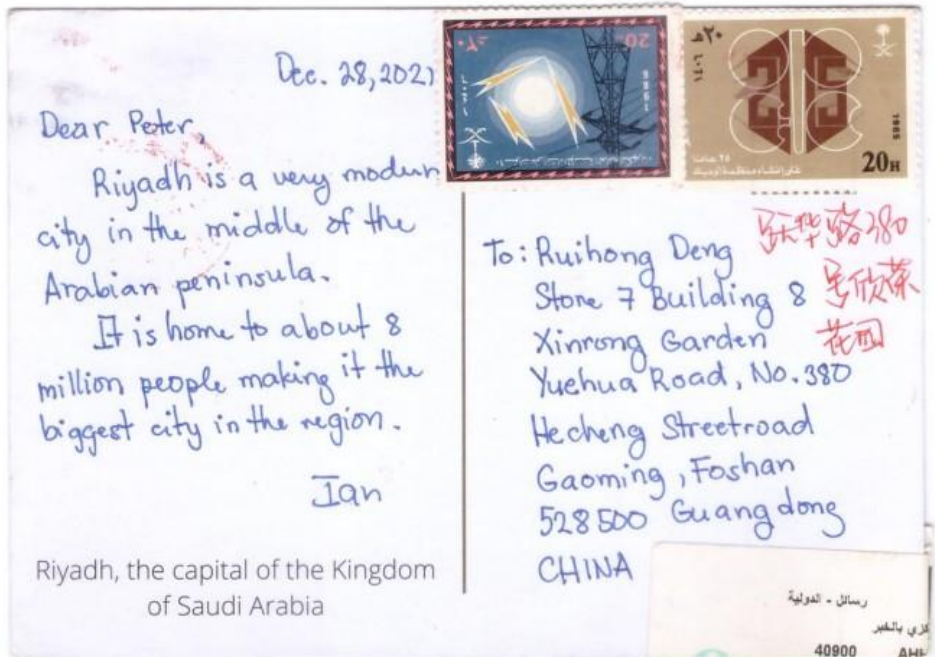 Dec. 28, 2021
Dear Peter,
Riyadh is a very modern
city in the middle of the
Arabian peninsula.
It is home to about 8
million people making it the
biggest city in the region.
Ian
Riyadh, the capital of the Kingdom
of Saudi Arabia
٢٠
20
1985
٢٠ هـ
١٤٠٦
1985
20H
٢٥ عاما
على إنشاء منظمة أوبيك
To: Ruihong Deng
Store 7 Building 8
Xinrong Garden
Yuehua Road, No. 380
Hecheng Streetroad
Gaoming, Foshan
528500 Guangdong
CHINA
跃华路380
号欣荣
花园
رسائل - الدولية
كزي بالخبر
40900 AHH